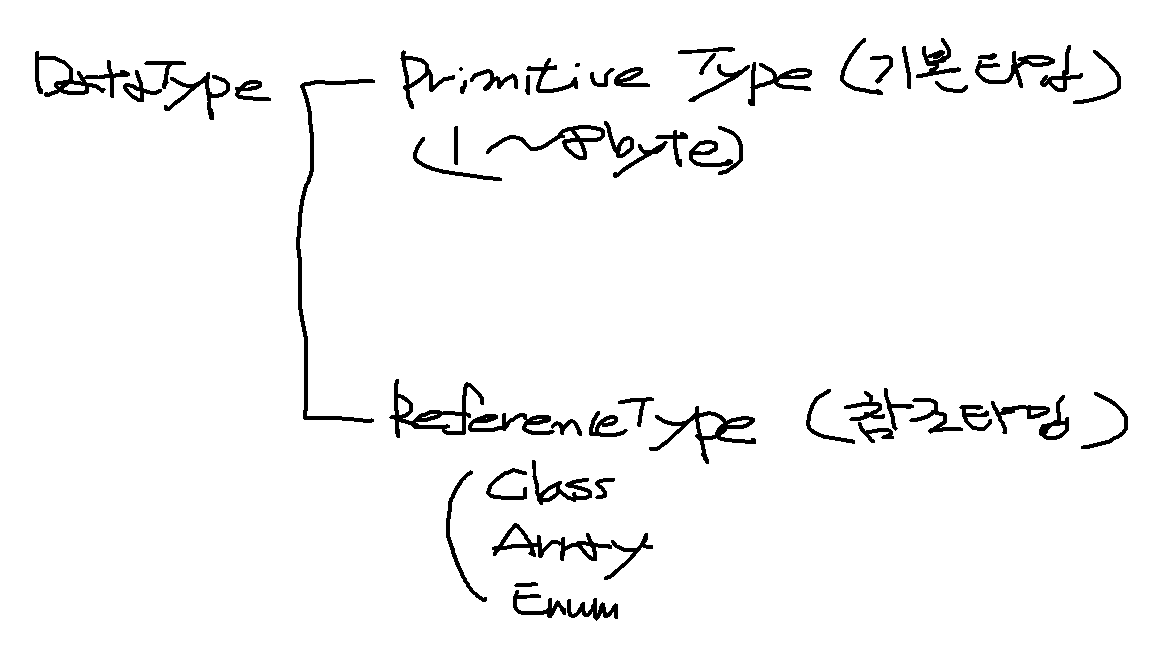 DataType
Primitive Type (기본타입)
(1~8byte)
ReferenceType (참조타입)
Class
Array
Enum